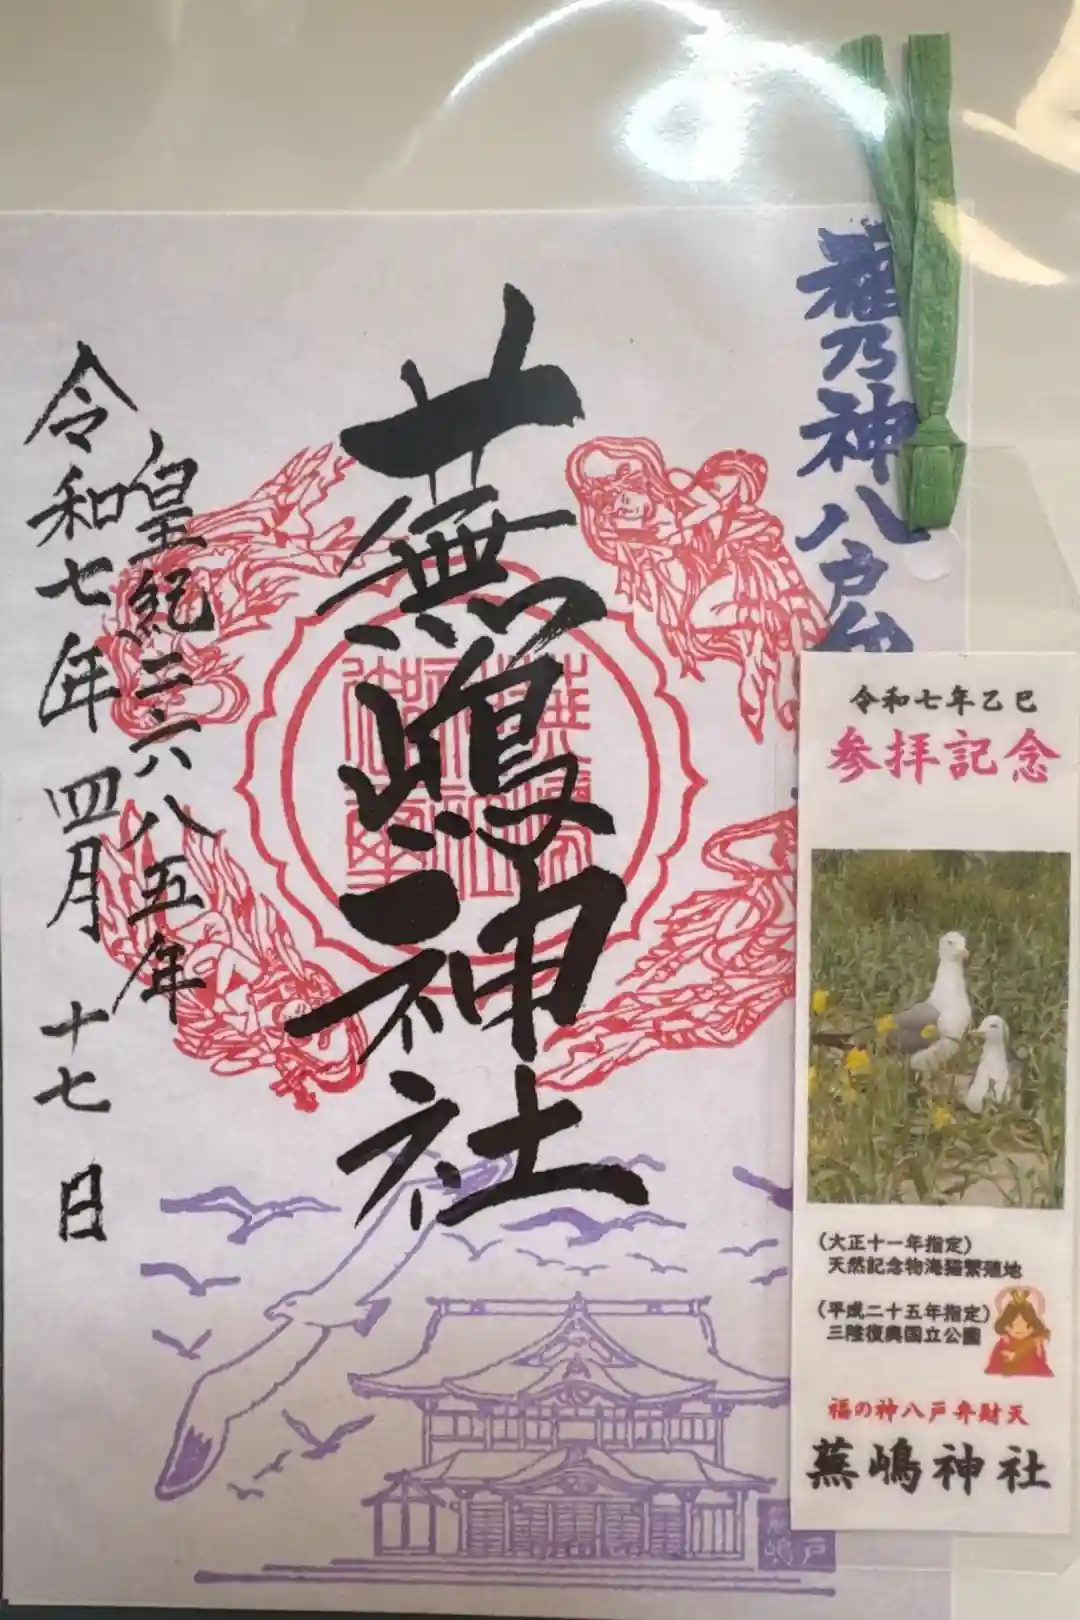 福乃神八戸弁
蕪嶋神社
皇紀二六八五年
令和七年 四月 十七 日
令和七年乙巳
参拝記念
（大正十一年指定）
天然記念物海猫繁殖地
（平成二十五年指定）
三陸復興国立公園
福の神八戸弁財天
蕪嶋神社